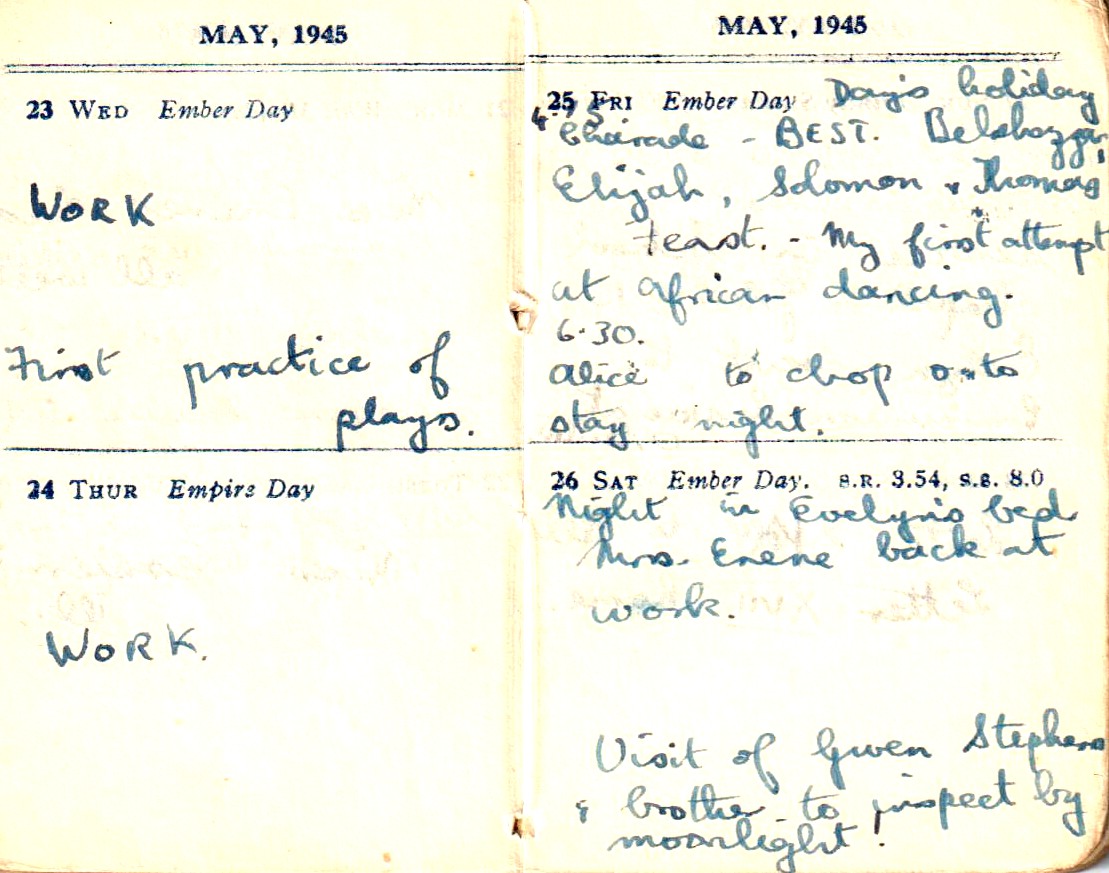 MAY, 1945
23 WED Ember Day
WORK
First practice of
plays.
24 THUR Empire Day
WORK.
MAY, 1945
25 FRI Ember Day Day's holiday
Charade - BEST. Belshazzar,
Elijah, Solomon & Thomas
Feast. - My first attempt
at African dancing.
6.30.
Alice to chop & to
stay night.
26 SAT Ember Day. S.R. 3.54, S.S. 8.0
Night in Evelyn's bed
Mrs. Enene back at
work.
Visit of Gwen Stephens
& brother to inspect by
moonlight!